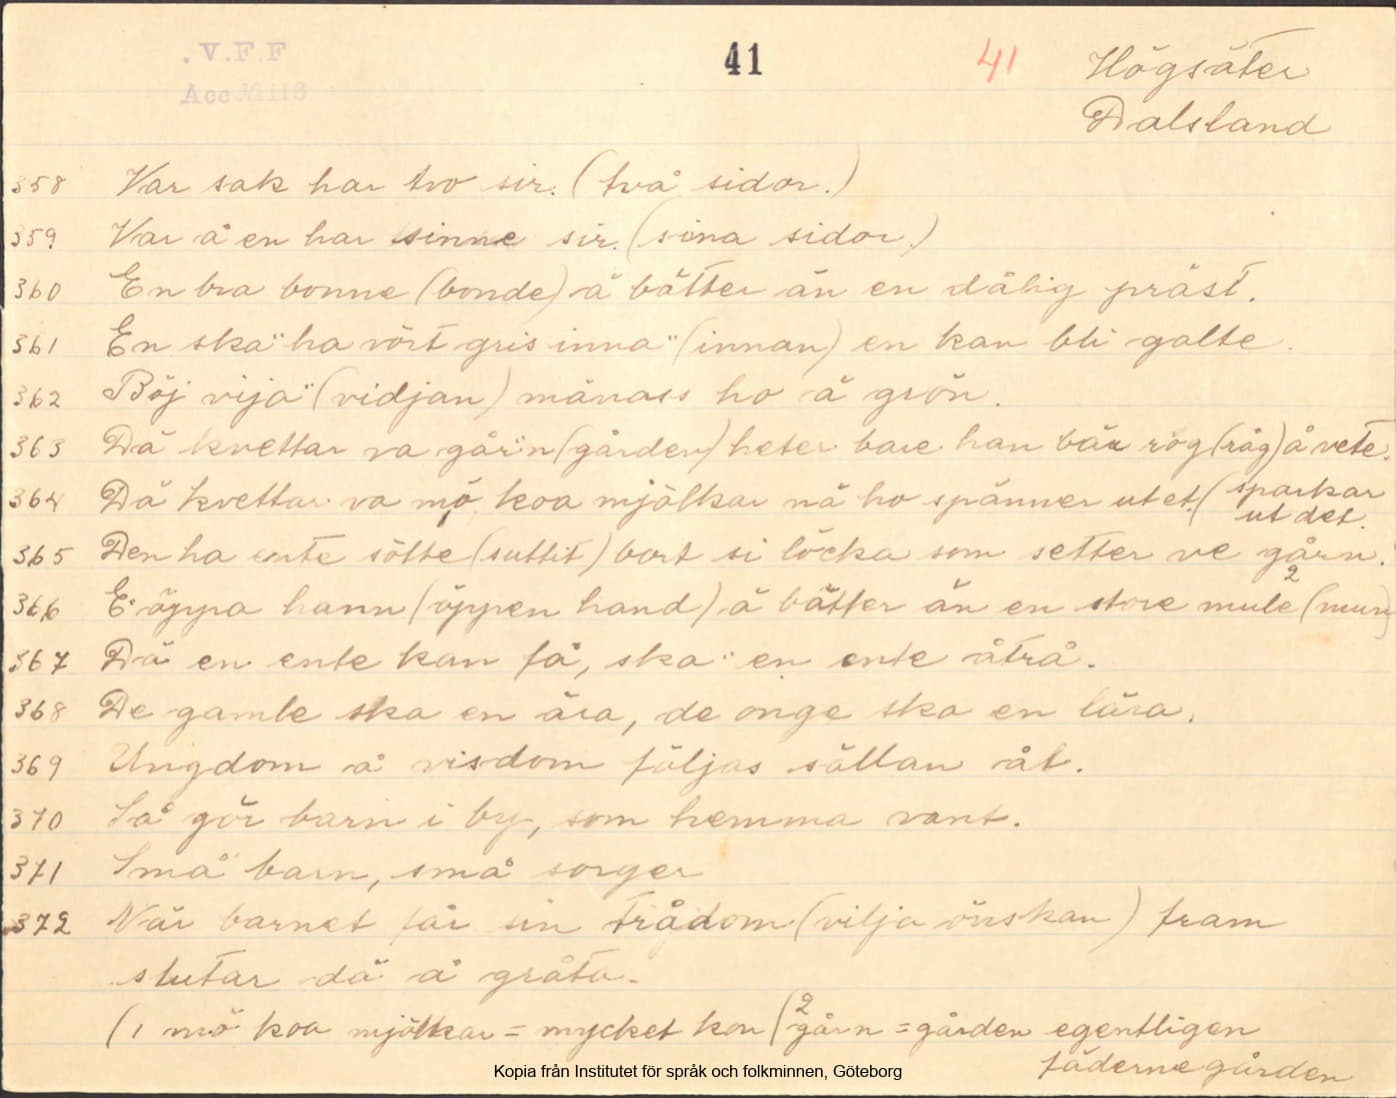 V.F.F
41
41
Högsäter
Acc
Dalsland
358 Var sak har tvo sir. (två sidor.)
359 Var å en har sinne sir. (sina sidor.)
360 En bra bonne (bonde) ä bätter än en dålig präst.
361 En ska" ha vört gris inna" (innan) en kan bli galte.
362 Böj vija" (vidjan) mänass ho ä grön.
363 Dä kvettar va går"n (gården) heter bare han bär rög (råg) å vete.
364 Dä kvettar va mö koa mjölkar nä ho spänner ut et. (sparkar
ut det.
365 Den ha ente sötte (suttit) bort si löcka som setter ve gårn.
2
366 E öppa hann (öppen hand) ä bätter än en store mule (mun)
367 Dä en ente kan få, ska" en ente åtrå.
368 De gamle ska en ära, de onge ska en lära.
369 Ungdom å visdom följas sällan åt.
370 Så gör barn i by, som hemma vant.
371 Små barn, små sorger
372 När barnet får sin trådom (vilja önskan) fram
slutar dä å gråta.
(1 mö koa mjölkar = mycket kon (2 gårn = gården egentligen
fädernegården
Kopia från Institutet för språk och folkminnen, Göteborg